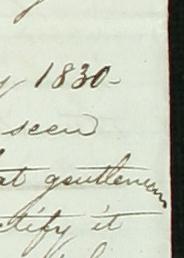 y 1830-
seen
at gentleman
ctify it